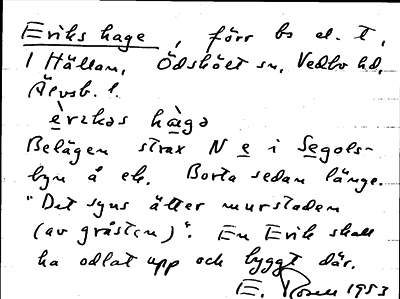 Eriks hage, förr bs el. t,
i Hällan, Ödskölt sn, Vedbo hd,
Älvsb. l.
è̱rikəs hà̱gə
Belägen strax N e̱ i Se̱gols-
byn å ek. Borta sedan länge.
"Det syns ätter murstaden
(av gråsten)". En Erik skall
ha odlat upp och byggt där.
E. Rosell 1953